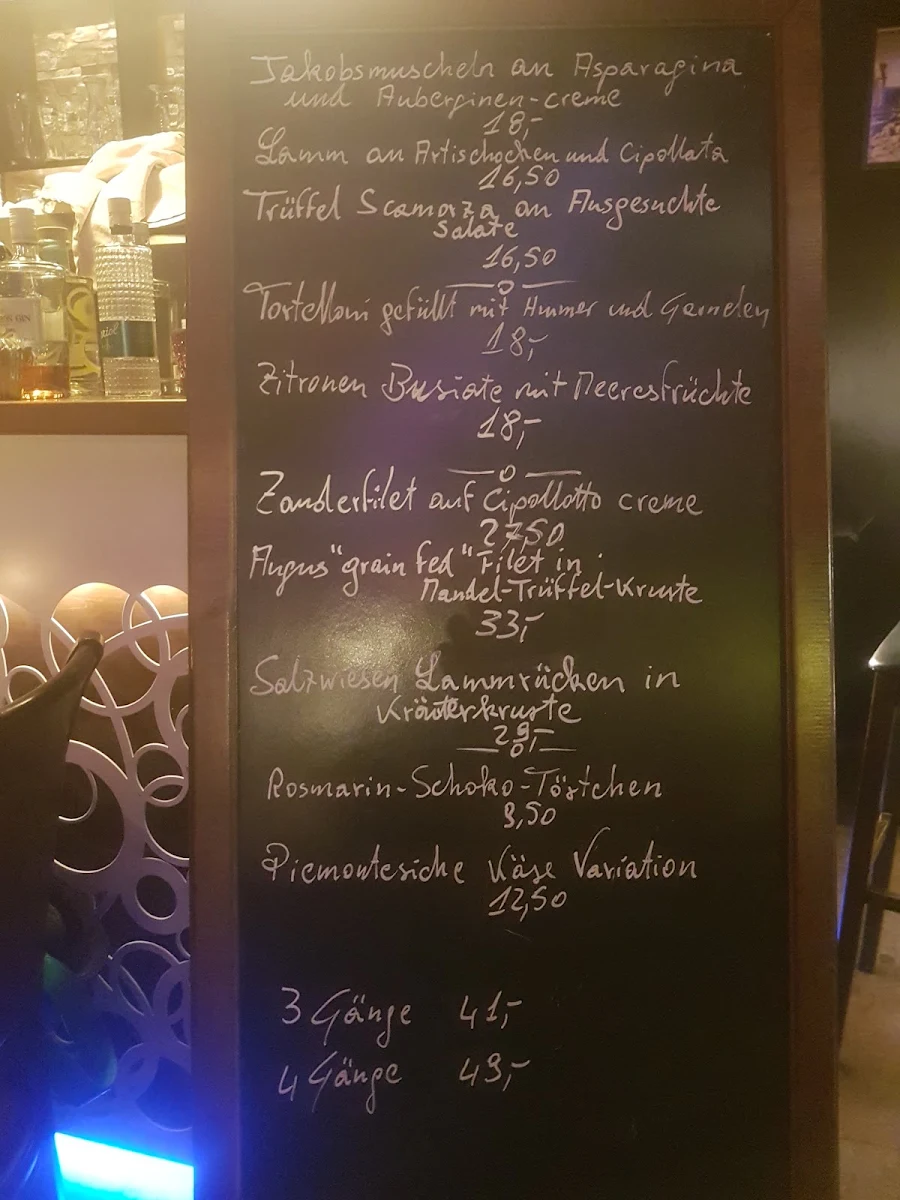 Jakobsmuscheln an Asparagina
und Auberginen-creme
18,-
Lamm an Artischocken und Cipollata
16,50
Trüffel Scamorza an Ausgesuchte
Salate
16,50
Tortelloni gefüllt mit Hummer und Garnelen
18,-
Zitronen Busiate mit Meeresfrüchte
18,-
Zanderfilet auf Cipollotto creme
27,50
Angus "grain fed" Filet in
Mandel-Trüffel-Kruste
33,-
Salzwiesen Lammrücken in
Kräuterkruste
29,-
Rosmarin-Schoko-Törtchen
9,50
Piemontesiche Käse Variation
12,50
3 Gänge 41,-
4 Gänge 49,-
GIN